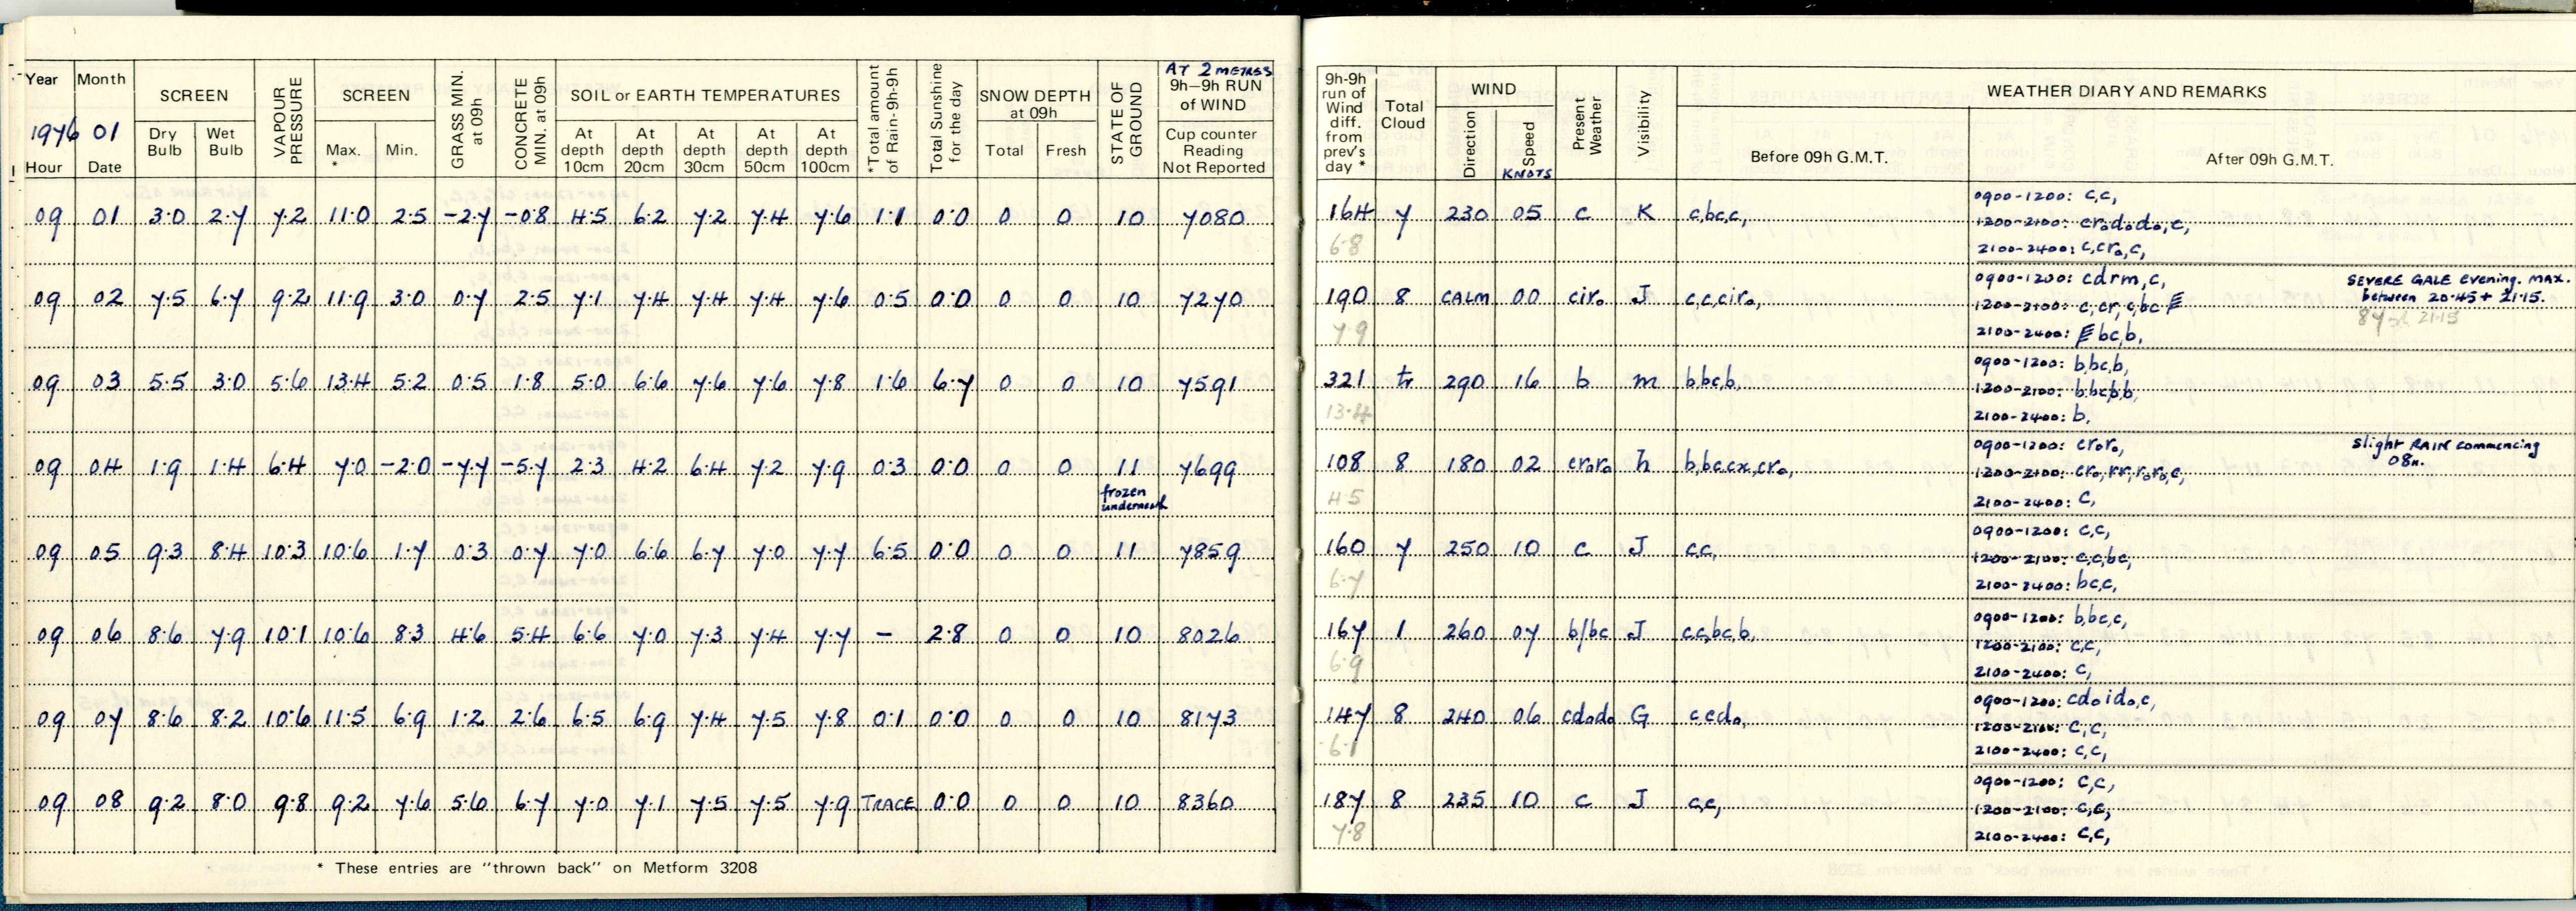 Year Month SCREEN VAPOUR PRESSURE SCREEN GRASS MIN. at 09h CONCRETE MIN. at 09h SOIL or EARTH TEMPERATURES *Total amount of Rain-9h-9h Total Sunshine for the day SNOW DEPTH at 09h STATE OF GROUND AT 2 METRES 9h—9h RUN of WIND
1976 01 Dry Bulb Wet Bulb Max. * Min. At depth 10cm At depth 20cm At depth 30cm At depth 50cm At depth 100cm Total Fresh Cup counter Reading Not Reported
Hour Date
09 01 3.0 2.7 7.2 11.0 2.5 -2.7 -0.8 4.5 6.2 7.2 7.4 7.6 1.1 0.0 0 0 10 7080
09 02 7.5 6.7 9.2 11.9 3.0 0.7 2.5 7.1 7.4 7.4 7.4 7.6 0.5 0.0 0 0 10 7270
09 03 5.5 3.0 5.6 13.4 5.2 0.5 1.8 5.0 6.6 7.6 7.6 7.8 1.6 6.7 0 0 10 7591
09 04 1.9 1.4 6.4 7.0 -2.0 -7.7 -5.7 2.3 4.2 6.4 7.2 7.9 0.3 0.0 0 0 11 7699
frozen
underneath
09 05 9.3 8.4 10.3 10.6 1.7 0.3 0.7 7.0 6.6 6.7 7.0 7.7 6.5 0.0 0 0 11 7859
09 06 8.6 7.9 10.1 10.6 8.3 4.6 5.4 6.6 7.0 7.3 7.4 7.7 — 2.8 0 0 10 8026
09 07 8.6 8.2 10.6 11.5 6.9 1.2 2.6 6.5 6.9 7.4 7.5 7.8 0.1 0.0 0 0 10 8173
09 08 9.2 8.0 9.8 9.2 7.6 5.6 6.7 7.0 7.1 7.5 7.5 7.9 TRACE 0.0 0 0 10 8360
* These entries are "thrown back" on Metform 3208
9h-9h run of Wind diff. from prev's day * Total Cloud WIND Present Weather Visibility WEATHER DIARY AND REMARKS
Direction Speed KNOTS Before 09h G.M.T. After 09h G.M.T.
0900-1200: c,c,
164 7 230 05 c K c,bc,c, 1200-2100: cr₀d₀d₀,c,
6.8 2100-2400: c,cr₀,c,
0900-1200: cdrm,c, SEVERE GALE Evening. MAX.
190 8 CALM 00 cir₀ J c,c,cir₀, 1200-2100: c,cr,c,bc between 20.45 + 21.15.
7.9 2100-2400: bc,b, 21.15
0900-1200: b,bc,b,
321 tr 290 16 b m b,bc,b, 1200-2100: b,bc,b,b,
13.4 2100-2400: b,
0900-1200: cr₀r₀, Slight RAIN commencing
108 8 180 02 cr₀r₀ h b,bc,cx,cr₀, 1200-2100: cr₀,rr,r₀r₀,c, 08h.
4.5 2100-2400: c,
0900-1200: c,c,
160 7 250 10 c J c,c, 1200-2100: c,c,bc,
6.7 2100-2400: bc,c,
0900-1200: b,bc,c,
167 1 260 07 b/bc J c,c,bc,b, 1200-2100: c,c,
6.9 2100-2400: c,
0900-1200: cd₀id₀,c,
147 8 240 06 cd₀d₀ G c,c,cd₀, 1200-2100: c,c,
6.1 2100-2400: c,c,
0900-1200: c,c,
187 8 235 10 c J c,c, 1200-2100: c,c,
7.8 2100-2400: c,c,